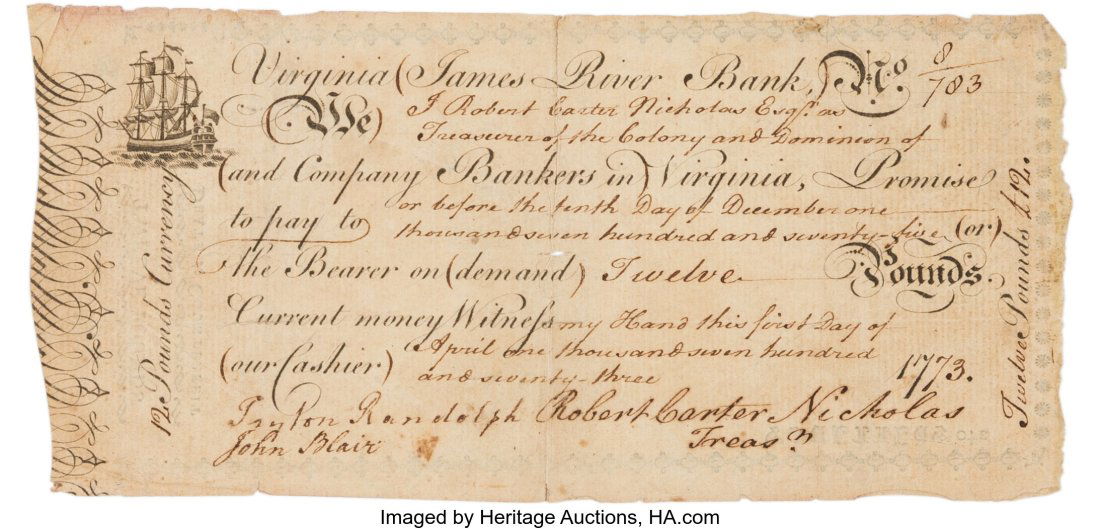 Virginia (James River Bank,) No. 8/783
(We) I Robert Carter Nicholas Esqr. as
Treasurer of the Colony and Dominion of
(and Company Bankers in) Virginia, Promise
to pay to or before the tenth Day of December one
thousand seven hundred and seventy-five (or)
the Bearer on (demand) Twelve Pounds.
Current money Witness my Hand this first Day of
(our Cashier) April one thousand seven hundred
and seventy-three 1773.
Peyton Randolph Robert Carter Nicholas
John Blair Treasr.
12 Pounds Currency
Twelve Pounds £12.
Imaged by Heritage Auctions, HA.com